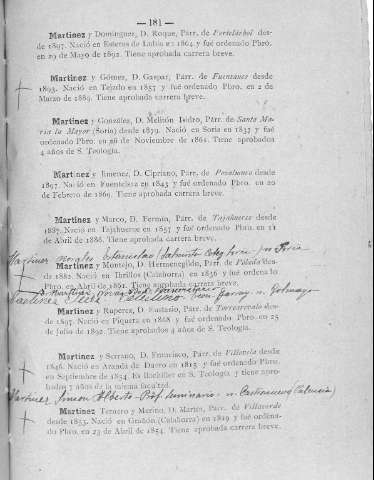 — 181 —
Martínez y Domínguez, D. Roque, Párr. de Portelárbol des-
de 1897. Nació en Esteras de Lubia en 1864 y fué ordenado Pbro.
en 29 de Mayo de 1892. Tiene aprobada carrera breve.
Martínez y Gómez, D. Gaspar, Párr. de Fuentunes desde
1893. Nació en Tejado en 1857 y fué ordenado Pbro. en 2 de
Marzo de 1889. Tiene aprobada carrera breve.
Martínez y González, D. Melitón Isidro, Párr. de Santa Ma-
ría la Mayor (Soria) desde 1879. Nació en Soria en 1837 y fué
ordenado Pbro. en 26 de Noviembre de 1861. Tiene aprobados
4 años de S. Teología.
Martínez y Jiménez, D. Cipriano, Párr. de Povalunas desde
1897. Nació en Fuentelisea en 1843 y fué ordenado Pbro. en 20
de Febrero de 1869. Tiene aprobada carrera breve.
Martínez y Marco, D. Fermín, Párr. de Tajahuerce desde
1887. Nació en Tajahuerce en 1857 y fué ordenado Pbro. en 11
de Abril de 1886. Tiene aprobada carrera breve.
Martínez
Martínez y Montejo, D. Hermenegildo, Párr. de desde
1882. Nació en Thrillos (Calahorra) en 1836 y fué ordenado
Pbro. en Abril de 1861. Tiene aprobada carrera breve.
Martínez
Martínez y Ruperez, D. Eustasio, Párr. de Torrearevalo desde
de 1897. Nació en Piquera en 1868 y fué ordenado Pbro. en 25
de Julio de 1892. Tiene aprobados 4 años de S. Teología.
Martínez y Serrano, D. Francisco, Párr. de Villaseca desde
1846. Nació en Aranda de Duero en 1815 y fué ordenado Pbro.
en Septiembre de 1854. Es Bachiller en S. Teología y tiene apro-
bados 7 años de la misma facultad.
Martínez Simeon Alberto - Prof. Seminario - n. Castronuevo (Palencia)
Martínez Ternero y Merino, D. Martín, Párr. de Villaverde
desde 1853. Nació en Grañón (Calahorra) en 1829 y fué ordena-
do Pbro. en 23 de Abril de 1854. Tiene aprobada carrera breve.